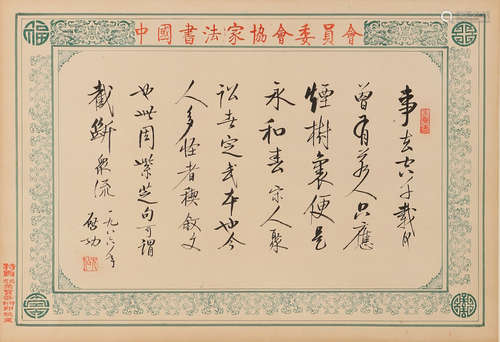 中國書法家協會委員會
事去 千載
曾有若人只應
煙樹裏便是
永和春宋人聚
訟者定武本也今
人多怪者禊叙文
也此周紫芝句可謂
截斷衆流 一九八六年 啟功